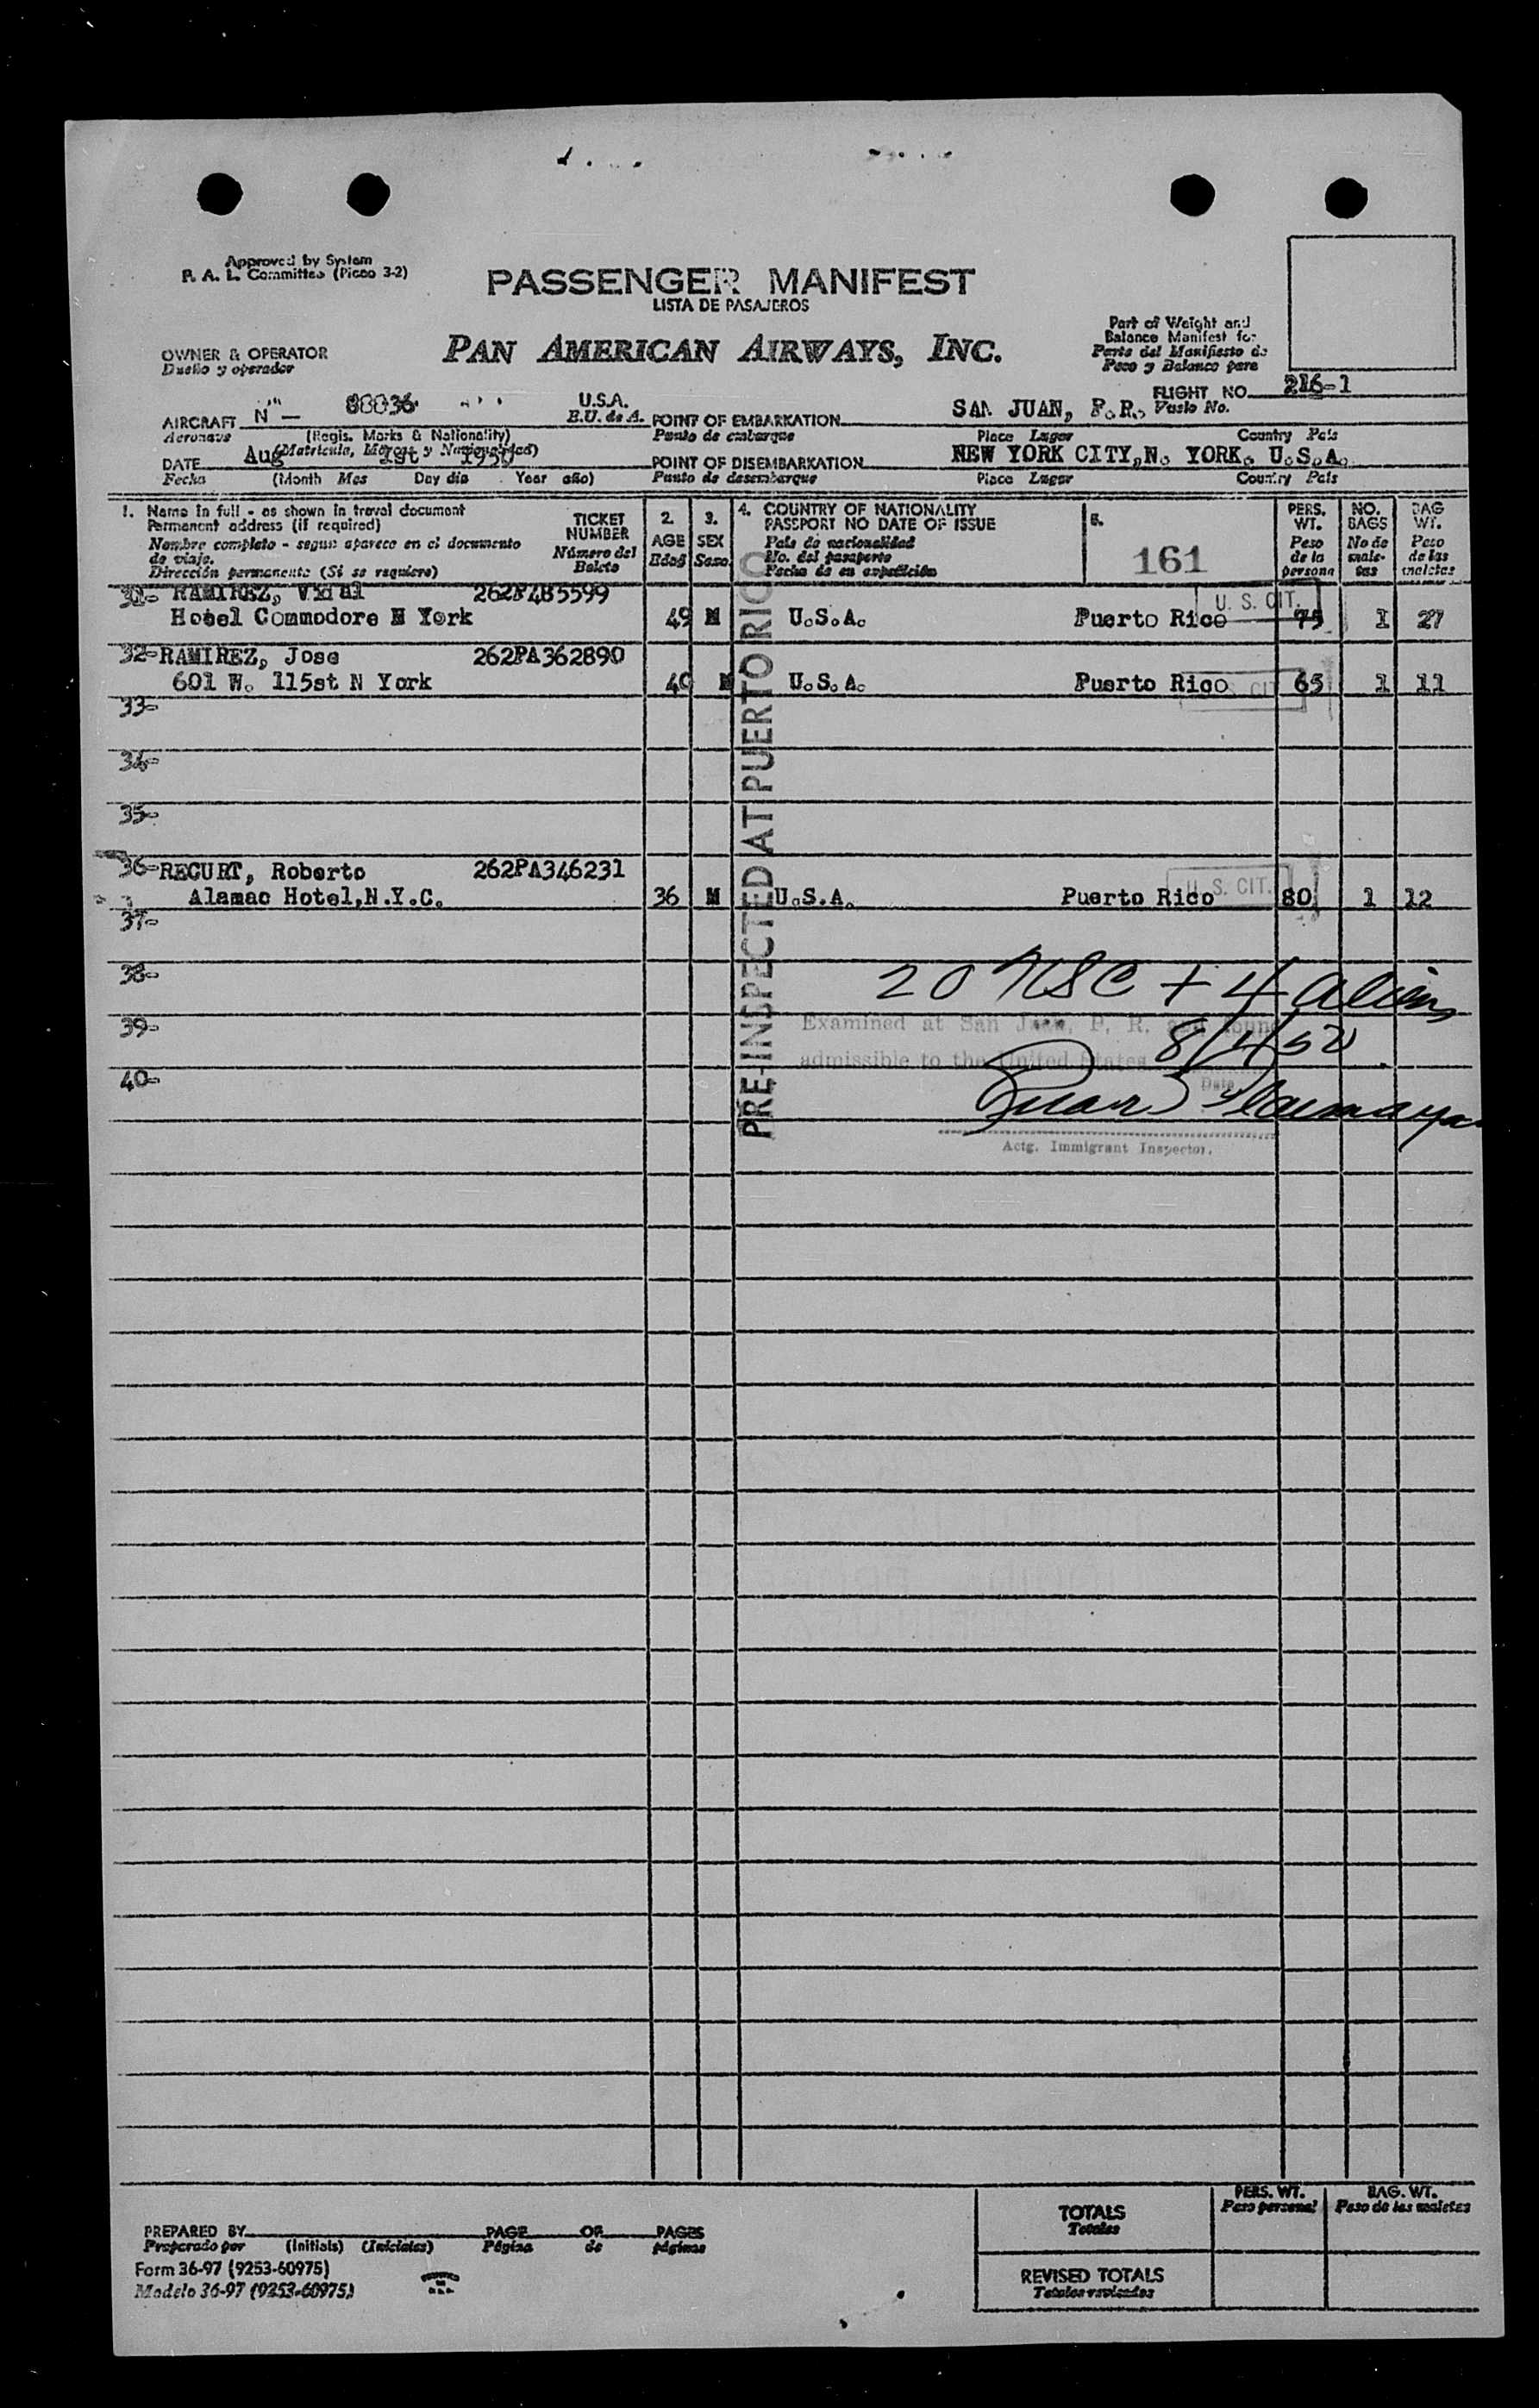 Approved by System
P. A. L. Committee (Picao 3-2)
PASSENGER MANIFEST
LISTA DE PASAJEROS
PAN AMERICAN AIRWAYS, INC.
Part of Weight and
Balance Manifest for
Parte del Manifiesto de
Peso y Balance para
OWNER & OPERATOR
Dueño y operador
FLIGHT NO. 216-1
Vuelo No.
AIRCRAFT N — 88036 U.S.A.
Aeronave (Regis. Marks & Nationality) E.U. de A.
(Matricula, Marcas y Nacionalidad)
POINT OF EMBARKATION SAN JUAN, P.R.
Punto de embarque Place Lugar Country Pais
DATE Aug 1st 1950
Fecha (Month Mes Day dia Year año)
POINT OF DISEMBARKATION NEW YORK CITY, N. YORK. U.S.A.
Punto de desembarque Place Lugar Country Pais
1. Name in full - as shown in travel document
Permanent address (if required)
Nombre completo - segun aparece en el documento
de viaje.
Dirección permanente (Si se requiere)
TICKET
NUMBER
Número del
Boleto
2.
AGE
Edad
3.
SEX
Sexo
4. COUNTRY OF NATIONALITY
PASSPORT NO DATE OF ISSUE
Pais de nacionalidad
No. del pasaporte
Fecha de su expedición
5.
161
PERS.
WT.
Peso
de la
persona
NO.
BAGS
No de
male-
tas
BAG
WT.
Peso
de las
maletas
31- RAMIREZ, Vidal 262P485599
Hotel Commodore N York 49 M U.S.A. Puerto Rico U. S. CIT. 75 1 27
32- RAMIREZ, Jose 262PA362890
601 W. 115st N York 40 M U.S.A. Puerto Rico U. S. CIT. 65 1 11
33-
34-
35-
36- RECURT, Roberto 262PA346231
Alamac Hotel, N.Y.C. 36 M U.S.A. Puerto Rico U. S. CIT. 80 1 12
37-
38-
39-
40-
PRE-INSPECTED AT PUERTO RICO
20 USC + 4 aliens
Examined at San Juan, P. R. and found
admissible to the United States 8/1/50
Date
Actg. Immigrant Inspector.
PREPARED BY PAGE OF PAGES
Preparado por (Initials) (Iniciales) Página de páginas
Form 36-97 (9253-60975)
Modelo 36-97 (9253-60975)
TOTALS
Totales
REVISED TOTALS
Totales revisados
PERS. WT.
Peso personal
BAG. WT.
Peso de las maletas